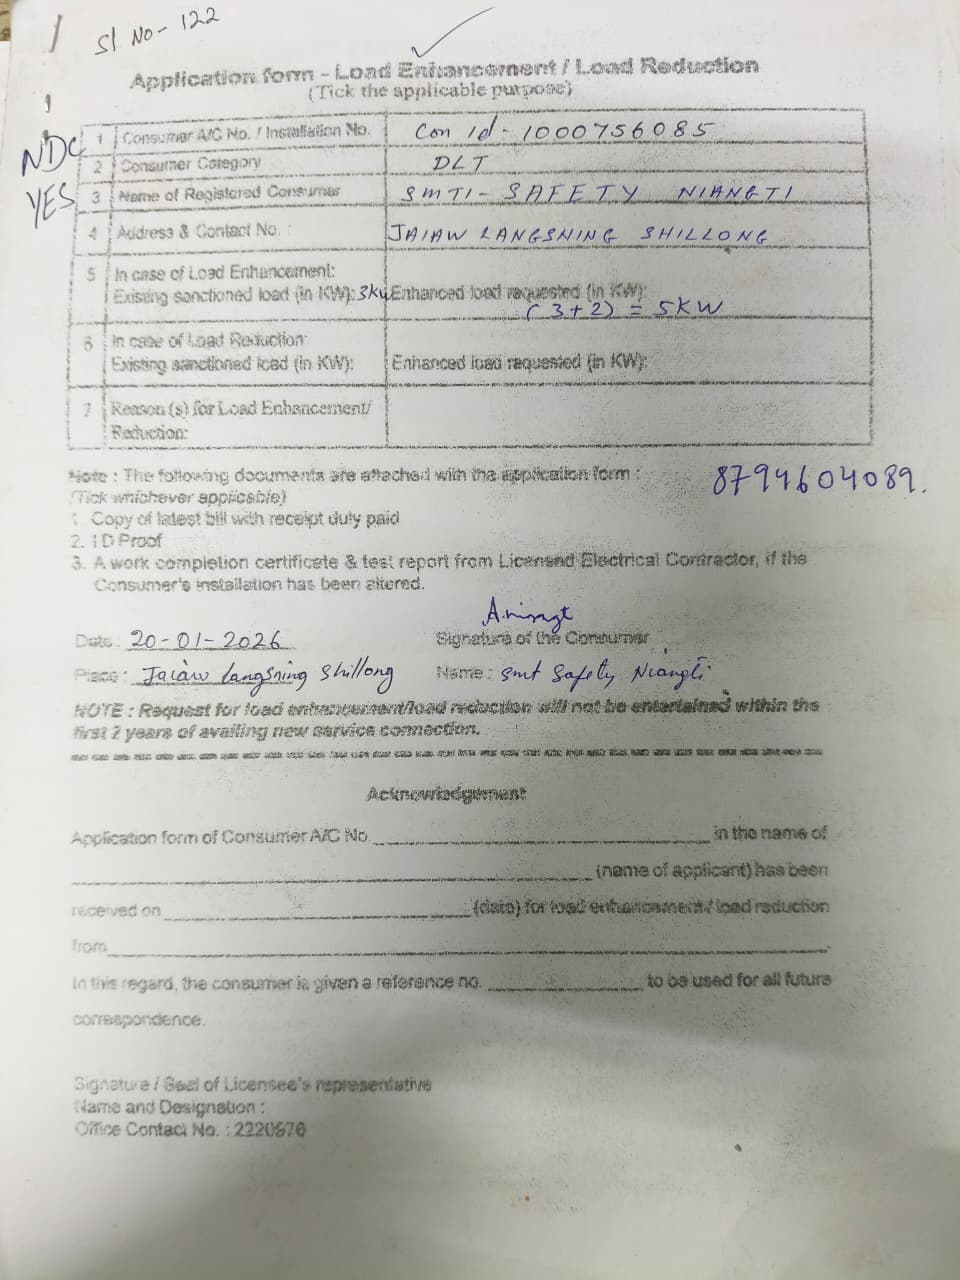 Sl No - 122
Application form - Load Enhancement / Load Reduction
(Tick the applicable purpose)
NDC
YES
1 Consumer A/C No. / Installation No. Con Id - 1000756085
2 Consumer Category DLT
3 Name of Registered Consumer SMTI - SAFETY NIANGTI
4 Address & Contact No. : JAIAW LANGSNING SHILLONG
5 In case of Load Enhancement:
Existing sanctioned load (in KW): 3kw Enhanced load requested (in KW):
(3+2) = 5KW
6 In case of Load Reduction:
Existing sanctioned load (in KW): Enhanced load requested (in KW):
7 Reason (s) for Load Enhancement/
Reduction:
Note : The following documents are attached with the application form :
8794604089.
(Tick whichever applicable)
1. Copy of latest bill with receipt duly paid
2. I D Proof
3. A work completion certificate & test report from Licensed Electrical Contractor, if the
Consumer's installation has been altered.
Date : 20-01-2026 Signature of the Consumer
Place : Jaiaw Langsning Shillong Name : Smt Safety Niangti
NOTE : Request for load enhancement/load reduction will not be entertained within the
first 2 years of availing new service connection.
Acknowledgement
Application form of Consumer A/C No. in the name of
(name of applicant) has been
received on (date) for load enhancement / load reduction
from
In this regard, the consumer is given a reference no. to be used for all future
correspondence.
Signature / Seal of Licensee's representative
Name and Designation :
Office Contact No. : 2220676